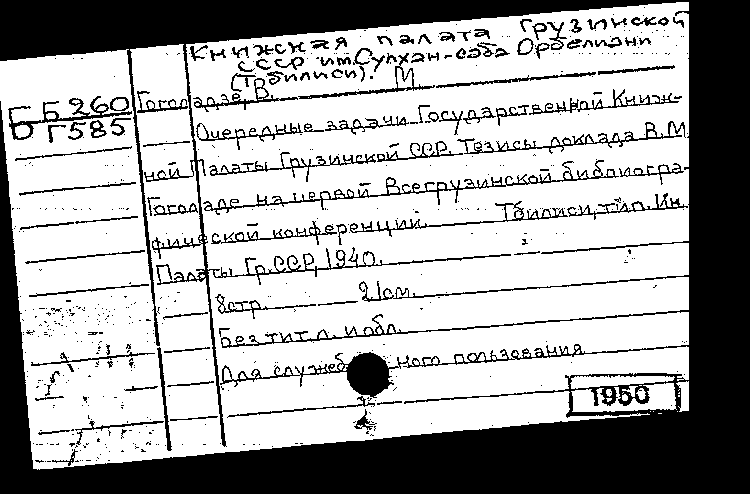 Книжская палата Грузинской
СССР им. Сулхан-саба Орбелиани
(Тбилиси).
ББ260
D Г585
Гоголадзе, В. М
Очередные задачи Государственной Книж-
ной Палаты Грузинской ССР. Тезисы доклада В.М.
Гоголадзе на первой Всегрузинской библиогра-
фической конференции. Тбилиси, тип. Ин.
Палаты Гр.ССР, 1940.
8стр. 21см.
Без тит.л. и обл.
Для служебного пользования
1950